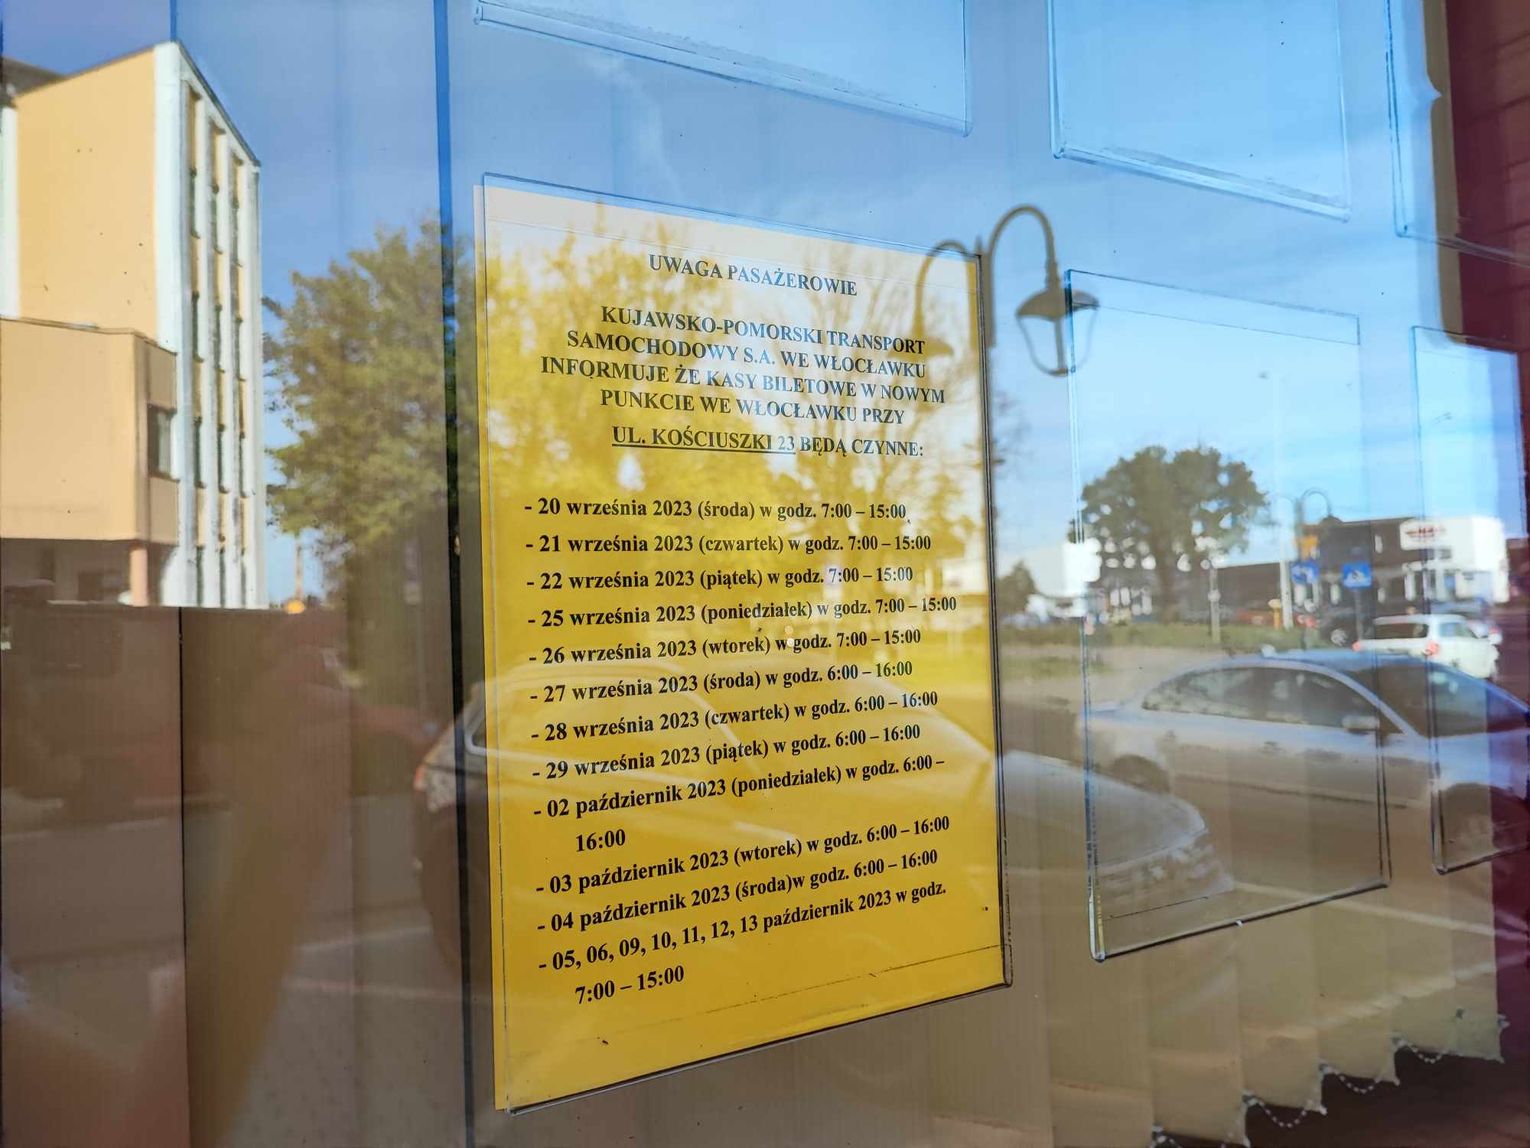 UWAGA PASAŻEROWIE
KUJAWSKO-POMORSKI TRANSPORT
SAMOCHODOWY S.A. WE WŁOCŁAWKU
INFORMUJE ŻE KASY BILETOWE W NOWYM
PUNKCIE WE WŁOCŁAWKU PRZY
UL. KOŚCIUSZKI 23 BĘDĄ CZYNNE:
- 20 września 2023 (środa) w godz. 7:00 – 15:00
- 21 września 2023 (czwartek) w godz. 7:00 – 15:00
- 22 września 2023 (piątek) w godz. 7:00 – 15:00
- 25 września 2023 (poniedziałek) w godz. 7:00 – 15:00
- 26 września 2023 (wtorek) w godz. 7:00 – 15:00
- 27 września 2023 (środa) w godz. 6:00 – 16:00
- 28 września 2023 (czwartek) w godz. 6:00 – 16:00
- 29 września 2023 (piątek) w godz. 6:00 – 16:00
- 02 październik 2023 (poniedziałek) w godz. 6:00 –
16:00
- 03 październik 2023 (wtorek) w godz. 6:00 – 16:00
- 04 październik 2023 (środa)w godz. 6:00 – 16:00
- 05, 06, 09, 10, 11, 12, 13 październik 2023 w godz.
7:00 – 15:00